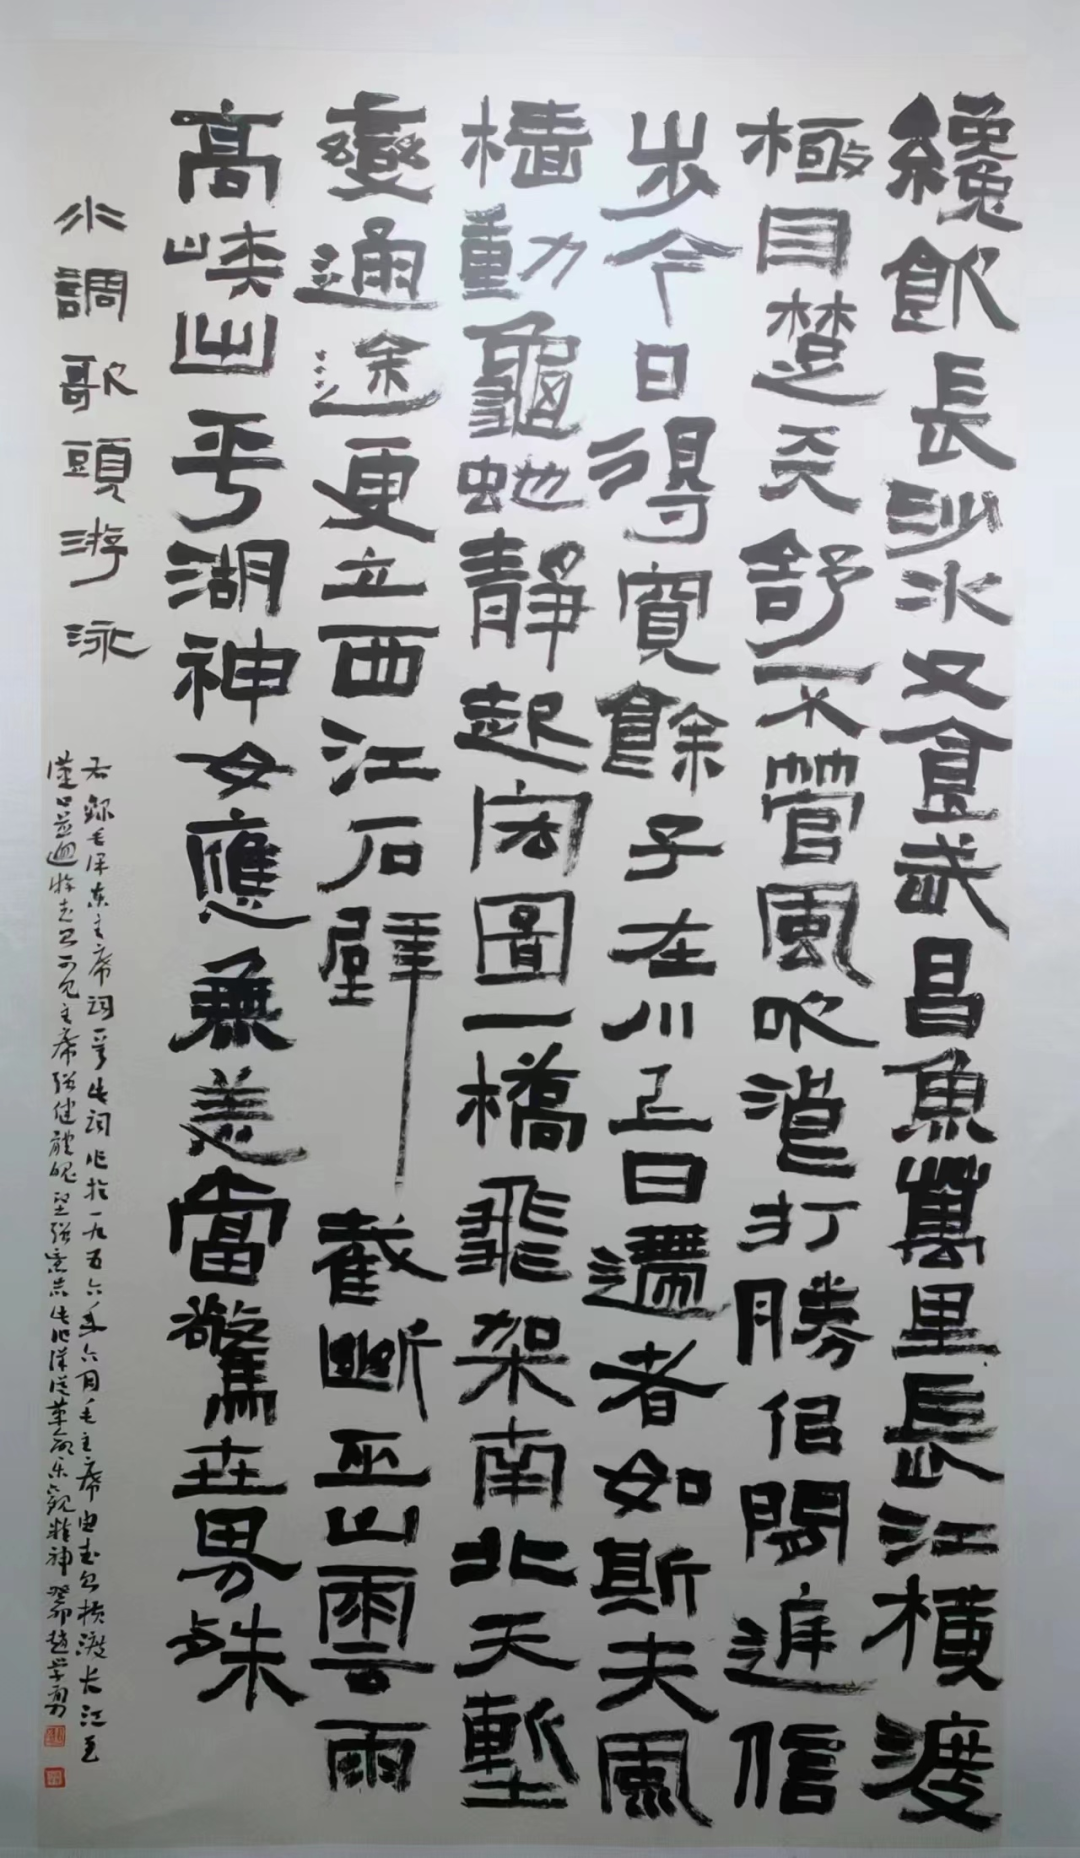 纔飲長沙水又食武昌魚萬里長江橫渡
極目楚天舒不管風吹浪打勝佀閒庭信
步今日得寬餘子在川上曰逝者如斯夫風
檣動龜蛇靜起宏圖一橋飛架南北天塹
變通途更立西江石壁截斷巫山雲雨
高峽出平湖神女應無恙當驚世界殊
水調歌頭游泳
右錄毛泽东主席詞一首此詞作於一九五六年六月毛主席由武昌横渡长江至
漢口並迴游武昌可見主席强健體魄堅强意志此作洋溢革命乐觀精神 癸卯趙学勇